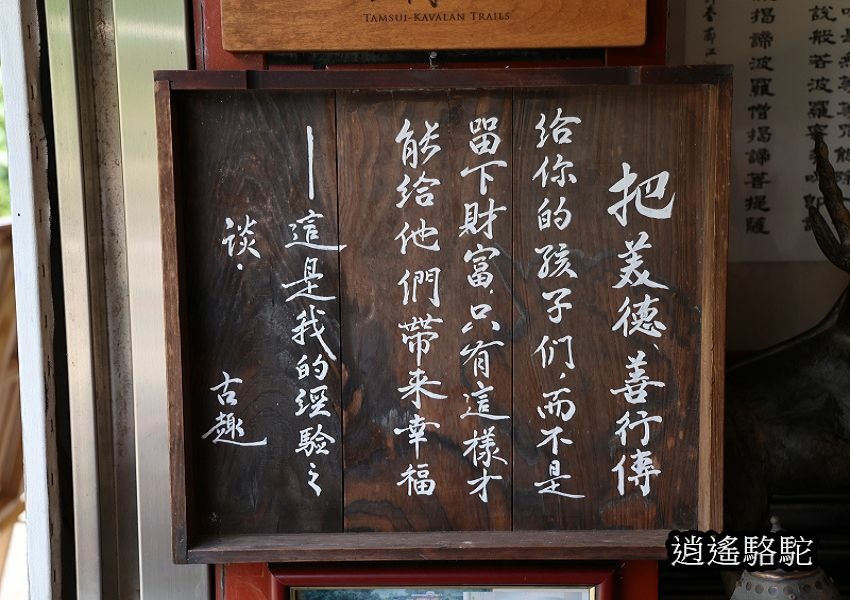 TAMSUI-KAVALAN TRAILS
把美德、善行傳
給你的孩子们而不是
留下財富,只有這樣才
能給他們帶来幸福
——這是我的經驗之
談.
古趣
揭諦波羅僧揭諦菩提薩
說般若波羅蜜
逍遙駱駝